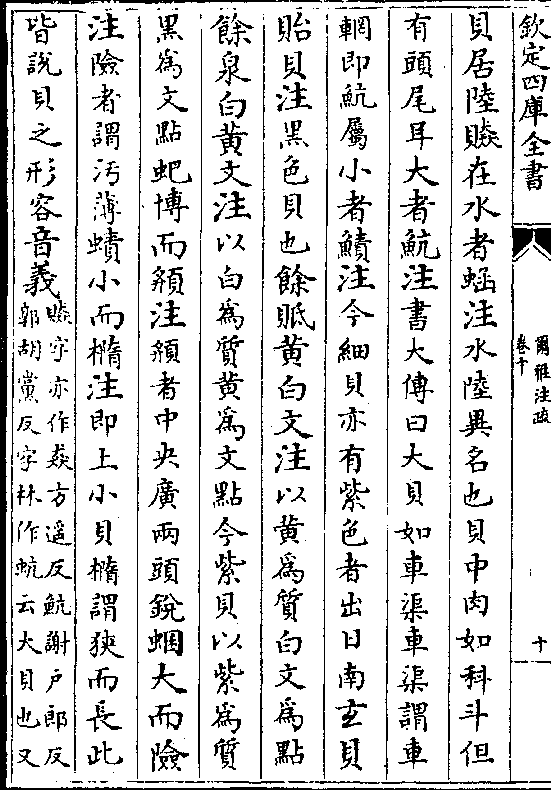 欽定四庫全書
爾雅注疏
卷十
十
貝居陸贆在水者蜬注水陸異名也貝中肉如科斗但
有頭尾耳大者魧注書大傳曰大貝如車渠車渠謂車
輞即魧屬小者鰿注今細貝亦有紫色者出日南玄貝
貽貝注黑色貝也餘貾黄白文注以黄為質白文為點
餘泉白黄文注以白為質黄為文點今紫貝以紫為質
黑為文點蚆博而頯注頯者中央廣兩頭銳蜠大而險
注險者謂汚薄蟦小而橢注即上小貝橢謂狹而長此
皆說貝之形容音義贆字亦作猋方遥反魧謝户郎反
郭胡黨反字林作蚢云大貝也又